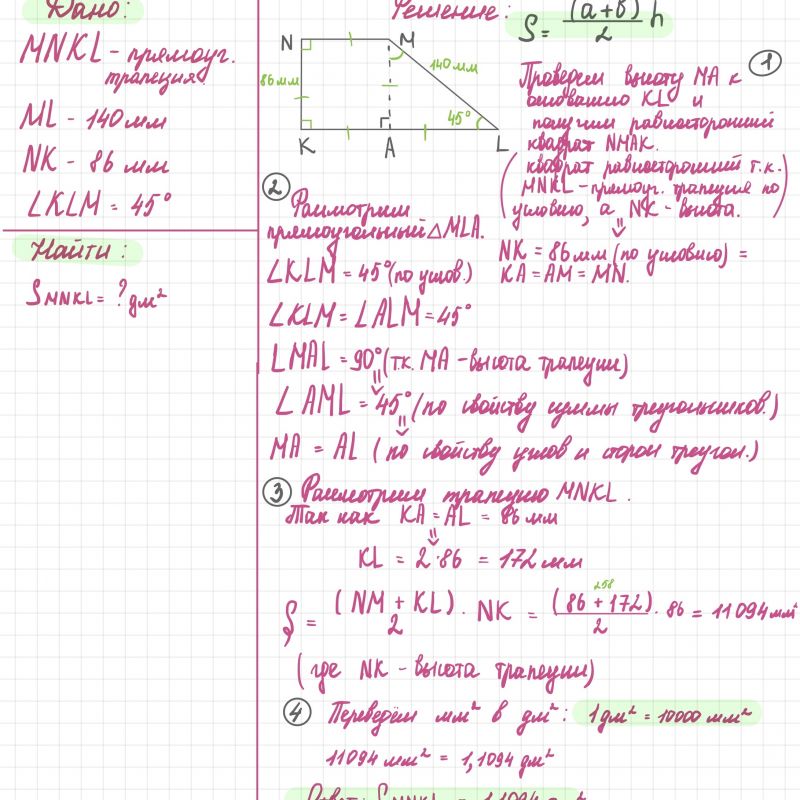 Дано:
MNKL - прямоуг.
трапеция.
ML - 140 мм
NK - 86 мм
∠KLM = 45°
Найти:
S MNKL = ? дм²
Решение:
S = (a+b)/2 h
N
M
86 мм
140 мм
45°
K
A
L
①
Проведем высоту MA к
основанию KL и
получим равносторонний
квадрат NMAK.
(квадрат равносторонний т.к.
MNKL - прямоуг. трапеция по
условию, а NK - высота.)
⇓
NK = 86 мм (по условию) =
KA = AM = MN.
②
Рассмотрим
прямоугольный △MLA.
∠KLM = 45° (по услов.)
∠KLM = ∠ALM = 45°
∠MAL = 90° (т.к. MA - высота трапеции)
⇓
∠AML = 45° (по свойству суммы треугольников.)
⇓
MA = AL (по свойству углов и сторон треугол.)
③ Рассмотрим трапецию MNKL.
Так как KA = AL = 86 мм
⇓
KL = 2·86 = 172 мм
258
S = (NM + KL)/2 · NK = (86 + 172)/2 · 86 = 11094 мм²
(где NK - высота трапеции)
④ Переведём мм² в дм²: 1 дм² = 10000 мм²
11094 мм² = 1,1094 дм²
Ответ: S MNKL = 1,1094 дм²